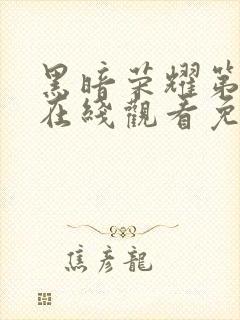 黑暗荣耀第
在綫觀看免
焦彥龍